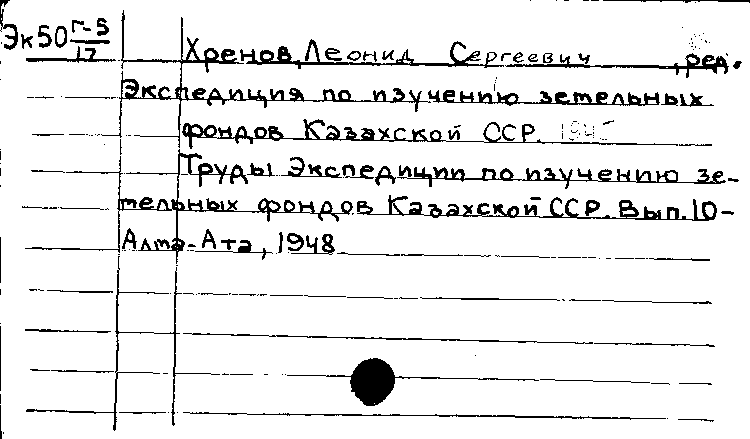 Эк50 Г-5/17
Хренов, Леонид Сергеевич, ред.
Экспедиция по изучению земельных
фондов Казахской ССР. 1945
Труды Экспедиции по изучению зе-
мельных фондов Казахской ССР. Вып. 10-
Алма-Ата, 1948